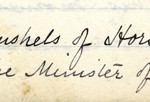 bushels of Hors
e Minister of